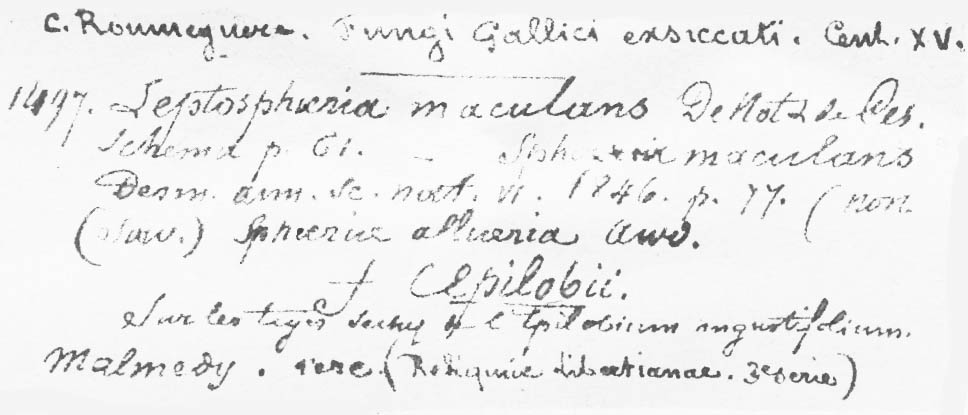 C. Roumeguere. Fungi Gallici exsiccati. Cent. XV.
1497. Leptosphæria maculans De Not & de Ces.
Schema p. 61. — Sphæria maculans
Desm. ann. sc. nat. VI. 1846. p. 77. (non
Sow.) Sphæria alliariæ Awd.
f Epilobii.
Sur les tiges seches de l'Epilobium angustifolium.
Malmedy. vere. (Reliquiæ Libertianae. 3e serie)